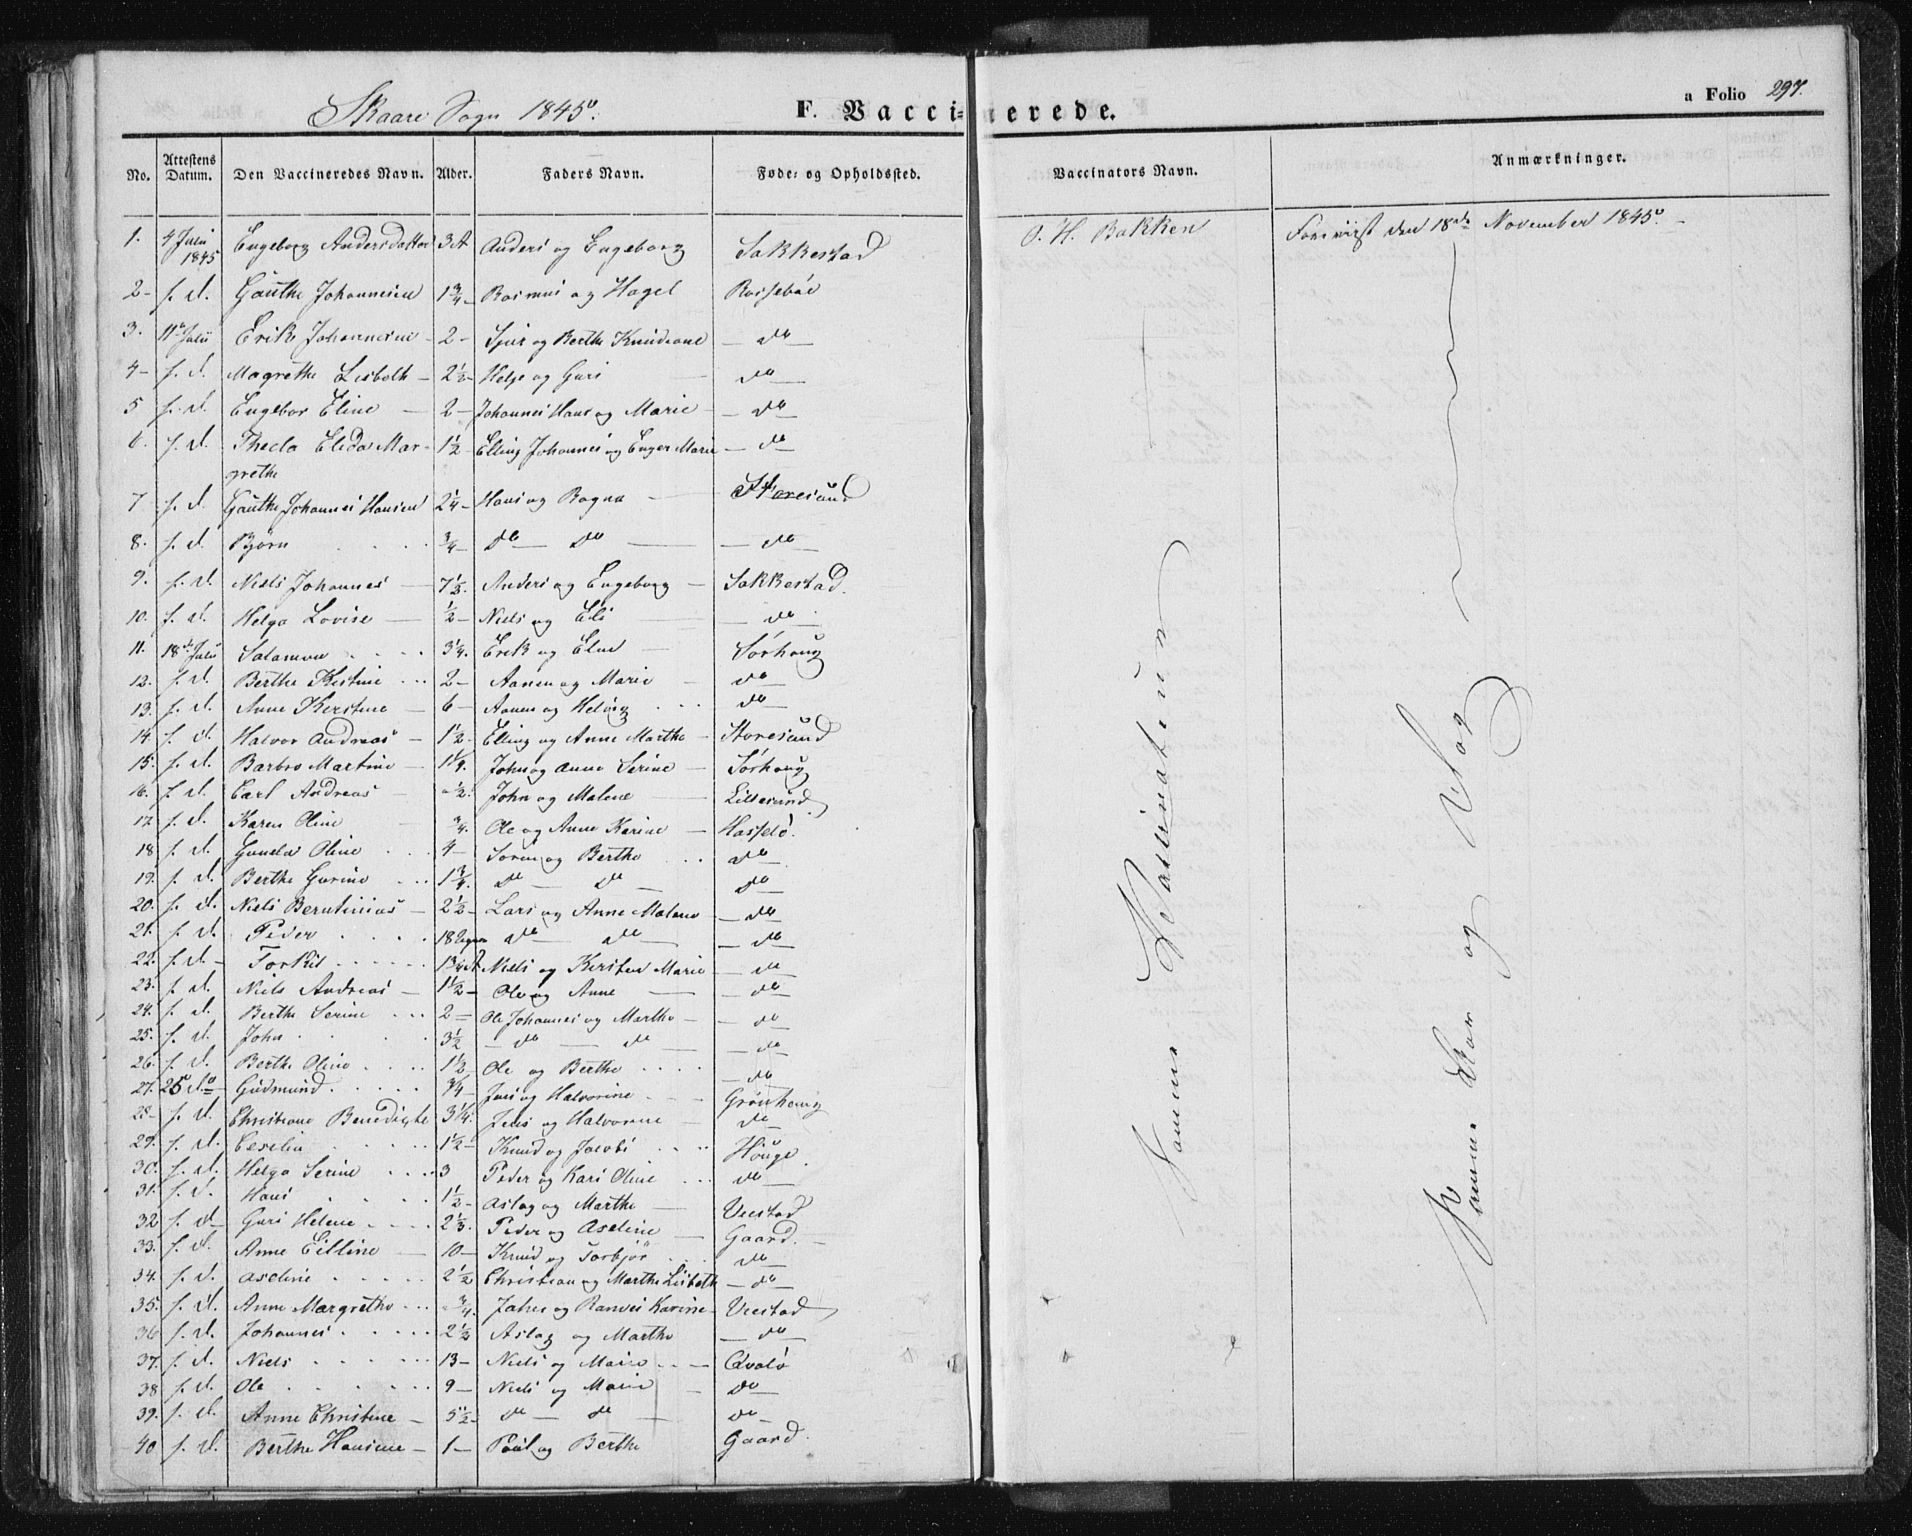 Skaare Sogn 1845.
F. Vaccinerede.
a Folio 297.
No. Attestens Datum. Den Vaccineredes Navn. Alder. Faders Navn. Føde- og Opholdssted. Vaccinators Navn. Anmærkninger.
1. 4 Juli 1845 Engeborg Andersdatter 3 A Anders og Engeborg Sakkestad O. H. Bakken Foreviist den 18de November 1845.
2- f. d. Gauthe Johannesen 1 3/4 - Rasmus og Hagel Rossebøe
3. 11te Juli Erik Johannesen - 2 - Sjur og Berthe Knudsone - do -
4- f. d. Magrethe Lisbeth - 2 1/2 - Helje og Guri - do -
5 f. d. Engebor Eline - 2 - Johannes Hans og Marie - - do -
6. f. d. Thecla Elida Mar- 1 1/2 Elling Johannes og Enger Marie - do -
grethe
7 f. d. Gauthe Johannes Hansen 2 1/4 - Hans og Ragna - Storesund
8. f. d. Bjørn 3/4 - Do - Do - - do -
9. f. d. Niels Johannes - 7 1/2. Anders og Engeborg - Sakkestad.
10. f. d. Helga Lovise - 1/2 - Niels og Eli - do -
11. 18de Juli Salamon 3 1/4. Erik og Elne - Sørhoug
12. f. d. Berthe Kistine 2 - Aanen og Marie - do -
13. f. d. Anne Kerstine - 6 - Aanen og Helvig do -
14 f. d. Halvor Andreas - 1 1/2 - Elling og Anne Marthe - Storesund
15. f. d. Barbro Martine - 1 1/4. John og Anne Serine - Sørhoug
16. f. d. Carl Andreas - 1/2. John og Malene - Lillesund
17 f. d. Karen Oline 3/4. Ole og Anne Karine - Hasselø.
18 f. d. Gunela Oline 4 - Søren og Berthe do -
19. f. d. Berthe Gurine 1 3/4. Do - Do - do -
20. f. d. Niels Berntinius - 2 1/2 - Lars og Anne Malene - do -
21. f. d. Peder 18 Uger do - do - - do -
22. f. d. - Torkel 1 3/4 A Niels og Kirsten Marie - do -
23. f. d. Niels Andreas - 1 1/2 - Ole og Anne - - do -
24. f. d. Berthe Serine 2 - Ole Johannes og Marthe - - do -
25. f. d. John 3 1/2 - do - do - do -
26. f. d. Berthe Oline 1 1/2 Ole og Berthe - do -
27. 25 do Gudmund 3/4 Jens og Halvorine Grønhoug
28- f. d. Christiane Benedicte 3 1/4. Jens og Halvorine - do -
29. f. d. Cecelia 1 1/2 - Knud og Jacobi Houge
30. f. d. Helga Serine 3 Peder og Kari Oline do -
31. f. d. Hans 1 1/2 - Aslag og Marthe - Veestad
32 f. d. Guri Helene 2 1/3. Peder og Aseline - Gaard. -
33. f. d. Anne Elline - 10 - Knud og Torbjør do -
34. f. d. Aseline 2 1/2 Christian og Marthe Lisbeth - do -
35. f. d. Anne Margrethe 3/4. Jahes og Ranvei Karine - Veestad
36 f. d. Johannes 2 1/2 Aslag og Marthe - do -
37. f. d. Niels 13 - Niels og Marie - Qvalø
38 f. d. Ole 9 - Niels og Marie - Do -
39. f. d. Anne Christine - 5 1/2 - do - do - do -
40 f. d. Berthe Hansine - 1 - Paul og Berthe Gaard.
Samme Vaccinateur
Samme Dag og